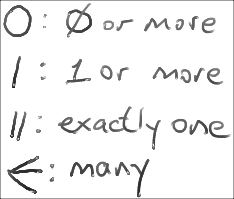 O: Ø or more
|: 1 or more
||: exactly one
<: many